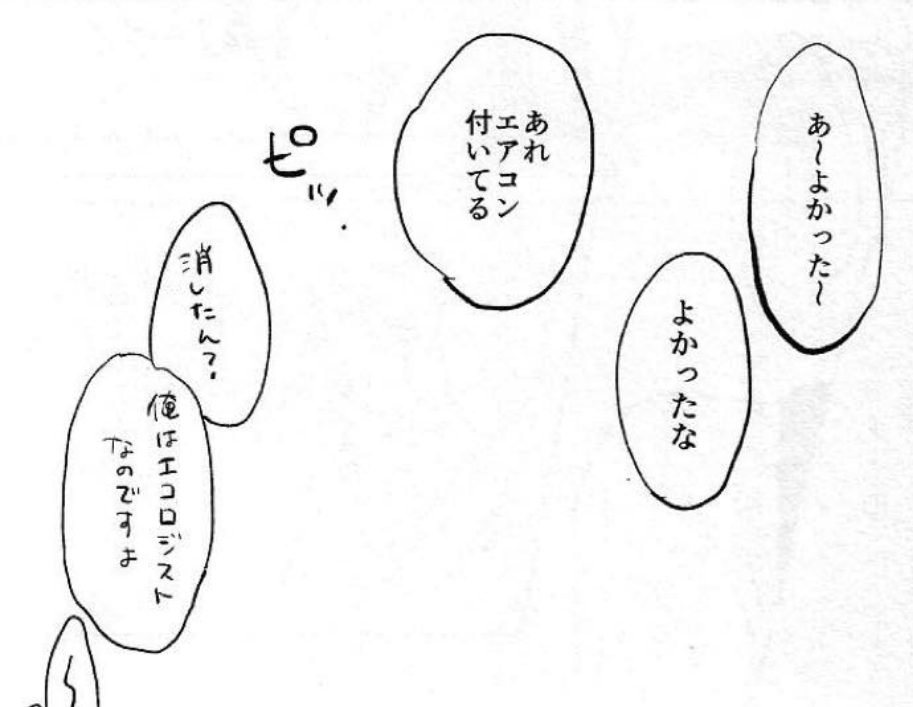 あ〜よかった〜
よかったな
あれ
エアコン
付いてる
ピッ
消したん?
俺はエコロジスト
なのですよ